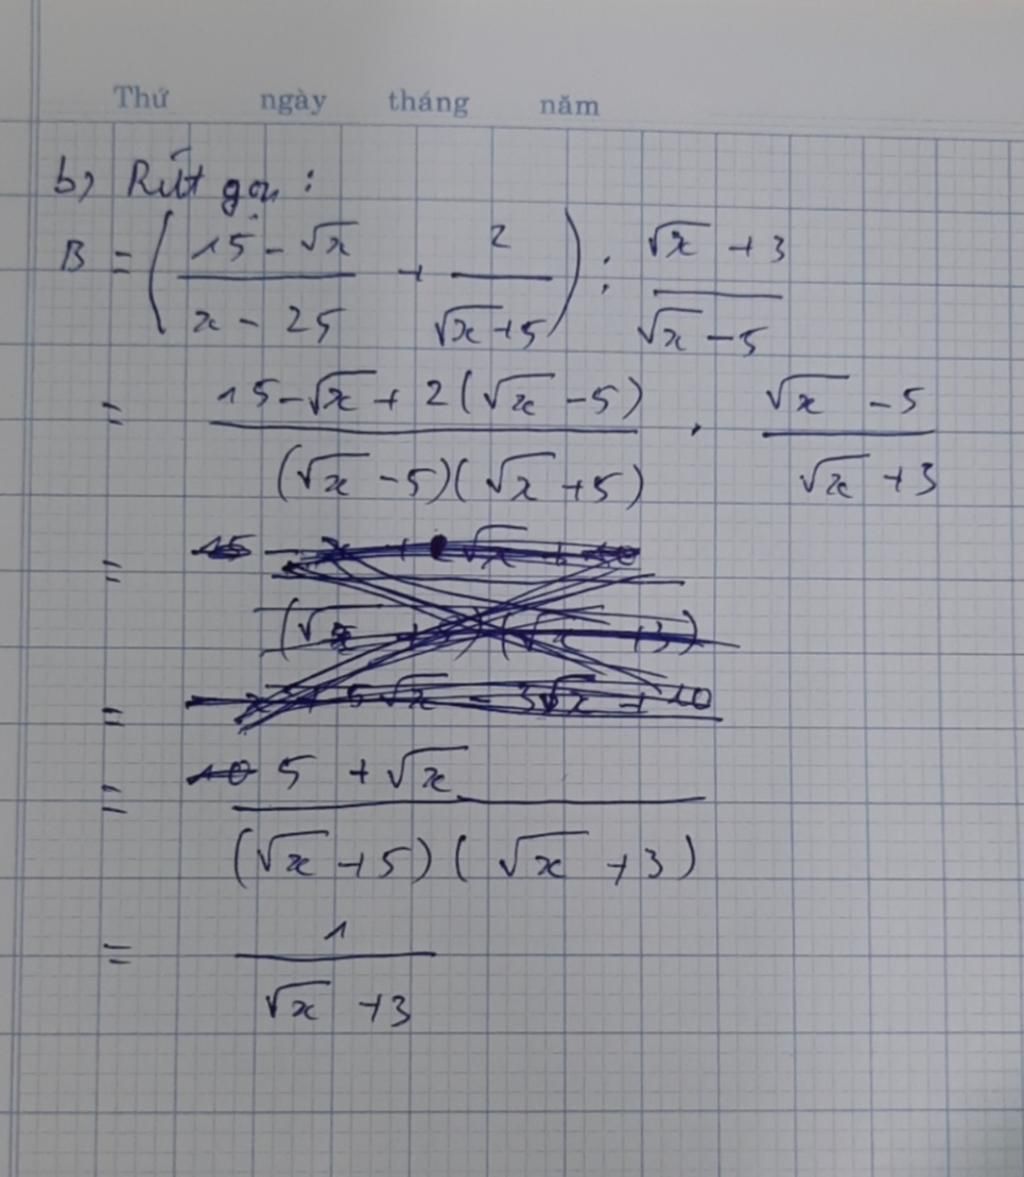 Thứ ngày tháng năm
b) Rút gọn :
B = ( (15 - √x)/(x - 25) + 2/(√x + 5) ) : (√x + 3)/(√x - 5)
= (15 - √x + 2(√x - 5))/((√x - 5)(√x + 5)) . (√x - 5)/(√x + 3)
=
=
= (5 + √x)/((√x + 5)(√x + 3))
= 1/(√x + 3)